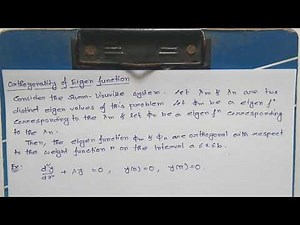 Orthogonality of Eigen function
Consider the Sturm-Liouville system. Let λm & λn are two
distinct eigen values of this problem let Φm be a eigen fⁿ
corresponding to the λm & let Φn be a eigen fⁿ corresponding
to the λn.
Then, the eigen function Φm & Φn are orthogonal with respect
to the weight function r on the interval a≤x≤b.
Ex: d²y/dx² + λy = 0, y(0)=0, y(π)=0.